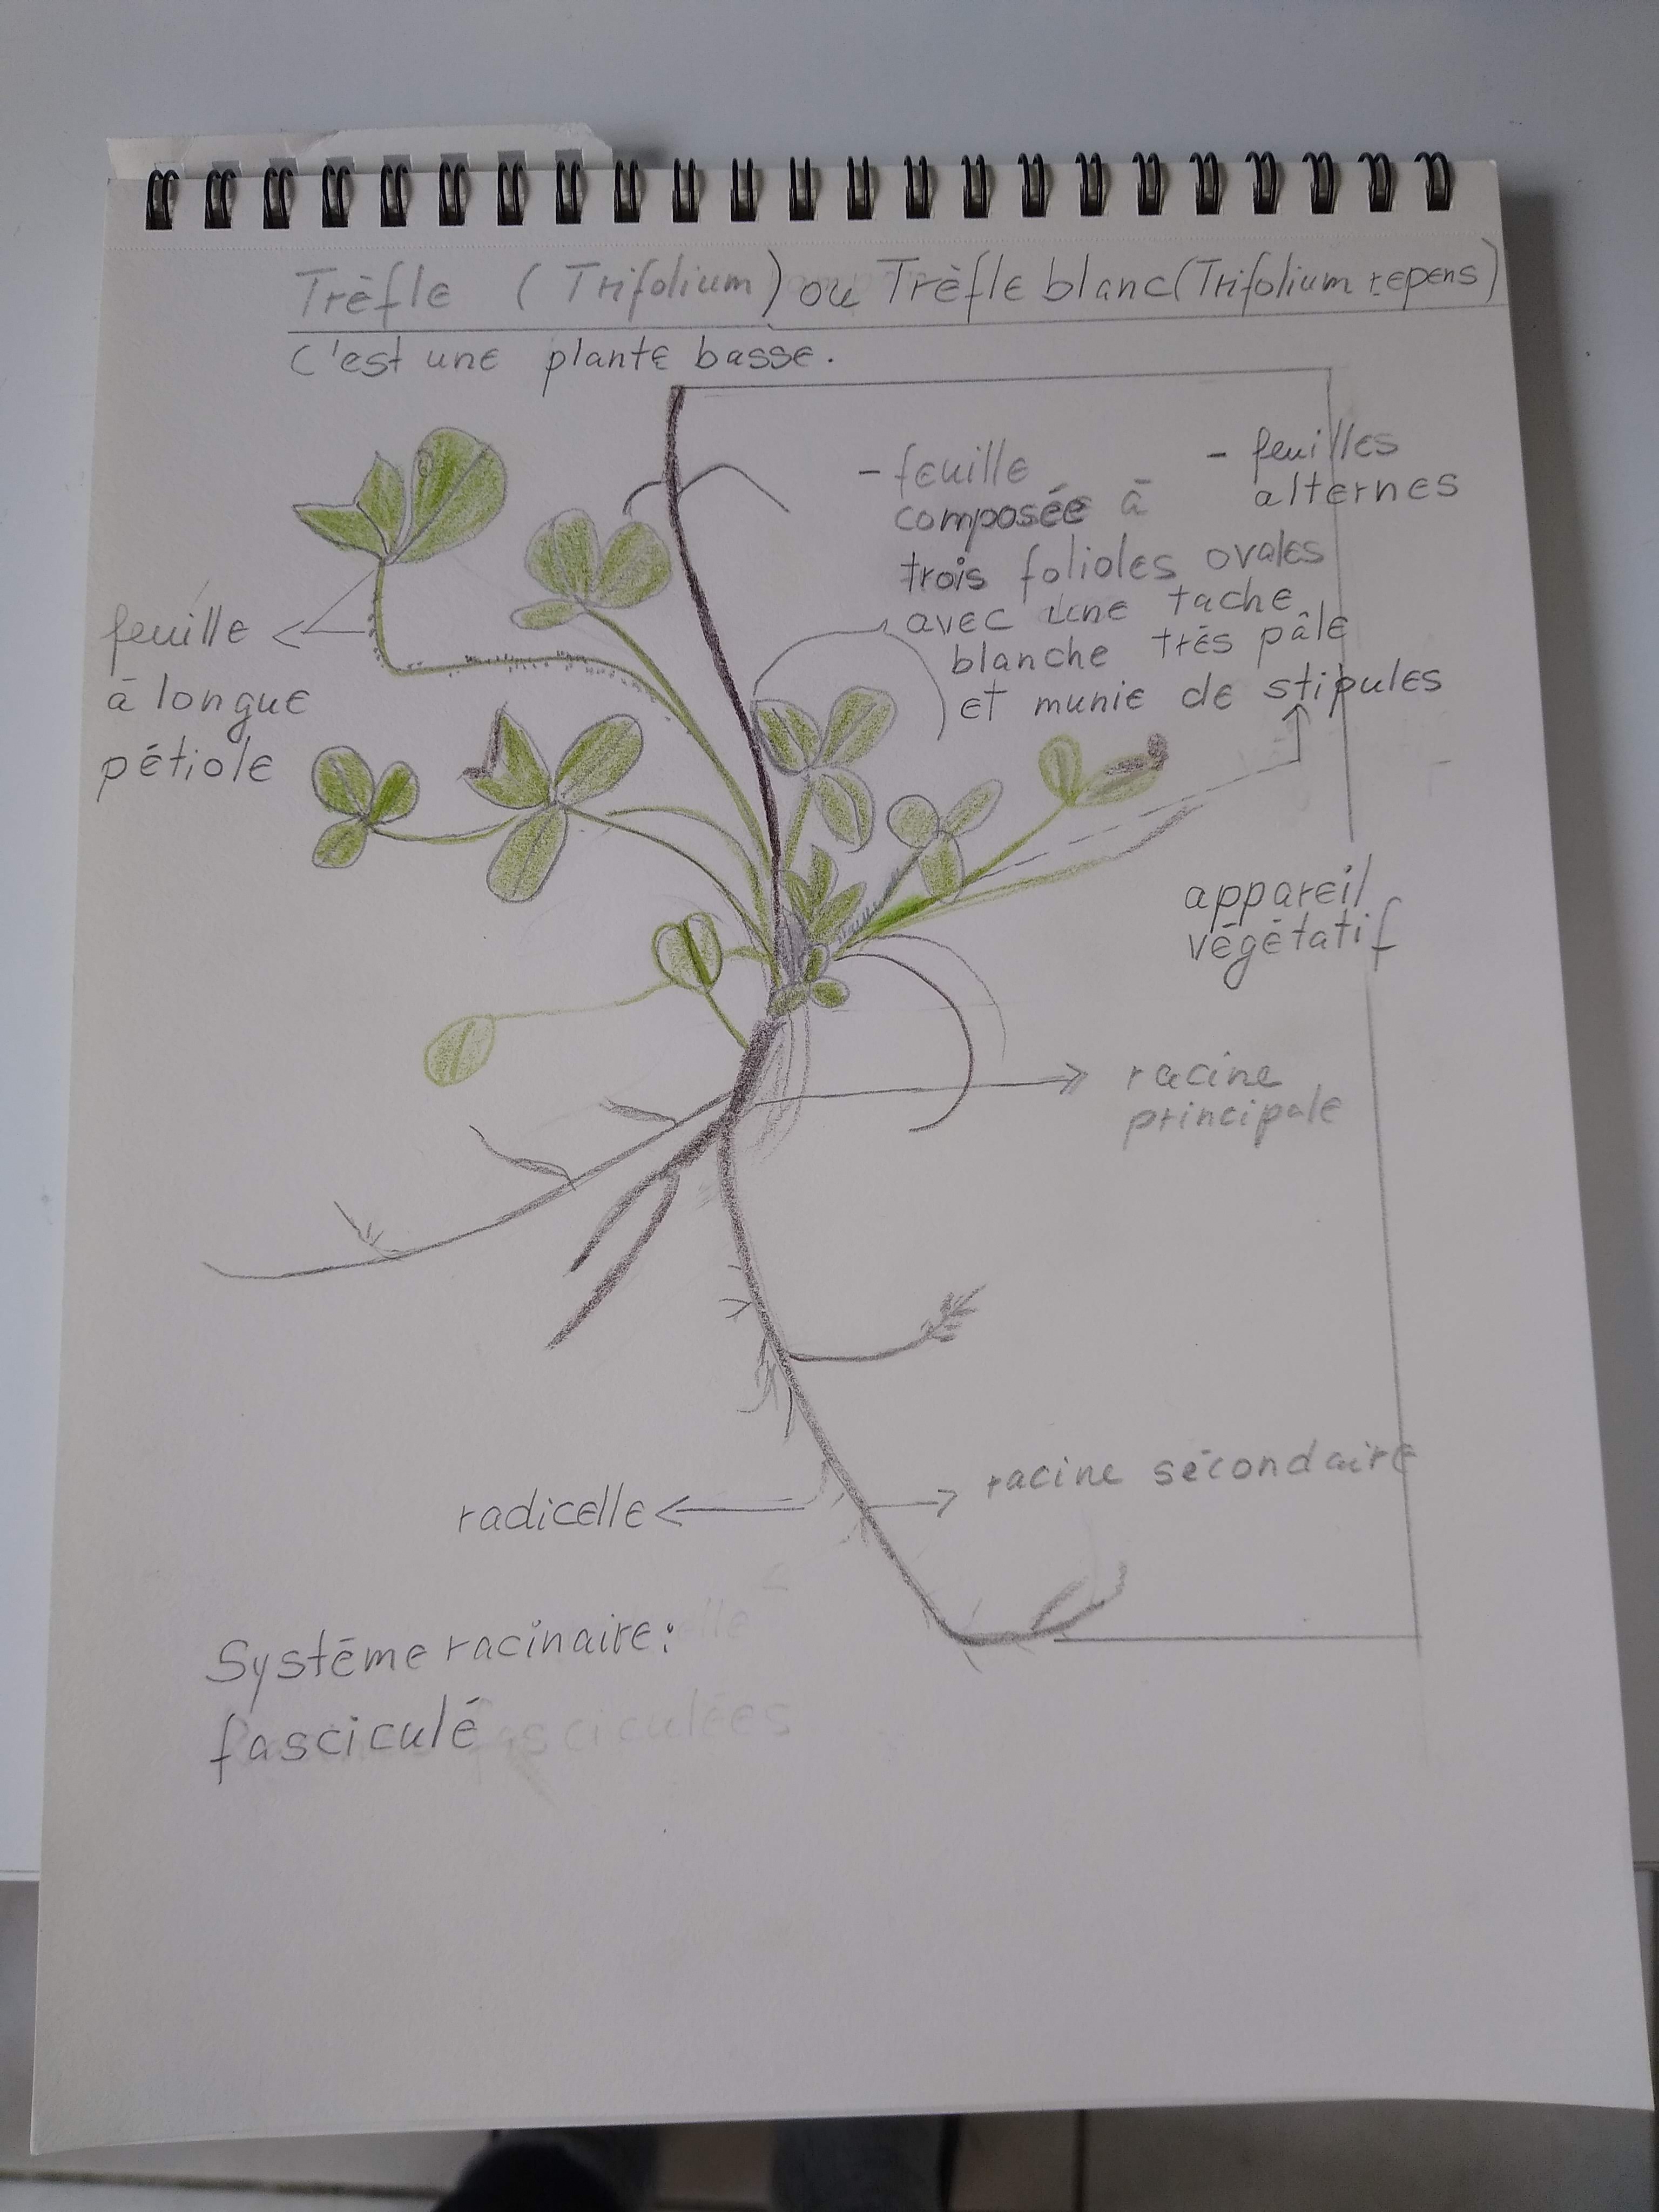 Trèfle (Trifolium) ou Trèfle blanc (Trifolium repens)
C'est une plante basse.
- feuille
composée à
trois folioles ovales
avec une tache
blanche très pâle
et munie de stipules
- feuilles
alternes
feuille
à longue
pétiole
appareil
végétatif
racine
principale
racine sécondaire
radicelle
Système racinaire:
fasciculé
fasciculées